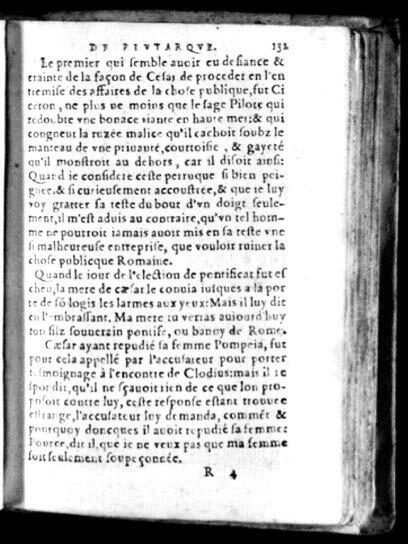 DE PLVTARQVE. 132
Le premier qui semble auoir eu defiance &
crainte de la façon de Cesar de proceder en l'en
tremise des affaires de la chose publique, fut Ci
ceron, ne plus ne moins que le sage Pilote qui
redoubte vne bonace riante en haute mer: & qui
congneut la ruzée malice qu'il cachoit soubz le
manteau de vne priuauté, courtoisie, & gayeté
qu'il monstroit au dehors, car il disoit ainsi:
Quand ie considere ceste perruque si bien pei-
gnée, & si curieusement accoustrée, & que ie luy
voy gratter sa teste du bout d'vn doigt seule-
ment, il m'est aduis au contraire, qu'vn tel hom-
me ne pourroit iamais auoir mis en sa teste vne
si malheureuse entreprise, que vouloir ruiner la
chose publicque Romaine.
Quand le iour de l'election de pentificat fut es
cheu, la mere de cæsar le conuia iusques a la por
te de sõ logis les larmes aux yeux: Mais il luy dit
en l'embrassant. Ma mere tu verras auiourd'huy
ton filz souuerain pontife, ou banny de Rome.
Cæsar ayant repudié sa femme Pompeia, fut
pour cela appellé par l'accusateur pour porter
tesmoignage à l'encontre de Clodius: mais il re
spõdit, qu'il ne sçauoit rien de ce que lon pro-
posoit contre luy, ceste response estant trouuee
estrange, l'accusateur luy demanda, commẽt &
pourquoy doncques il auoit repudié sa femme:
Pource, dit il, que ie ne veux pas que ma femme
soit seulement soupeçonnée.
R 4